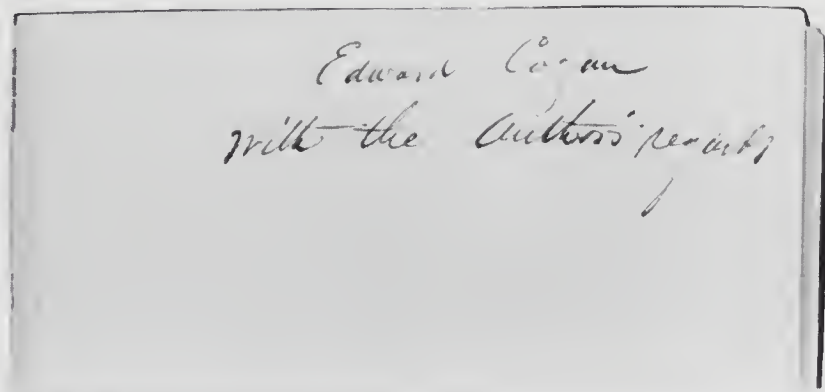 Edward Cogan
with the Author's regards